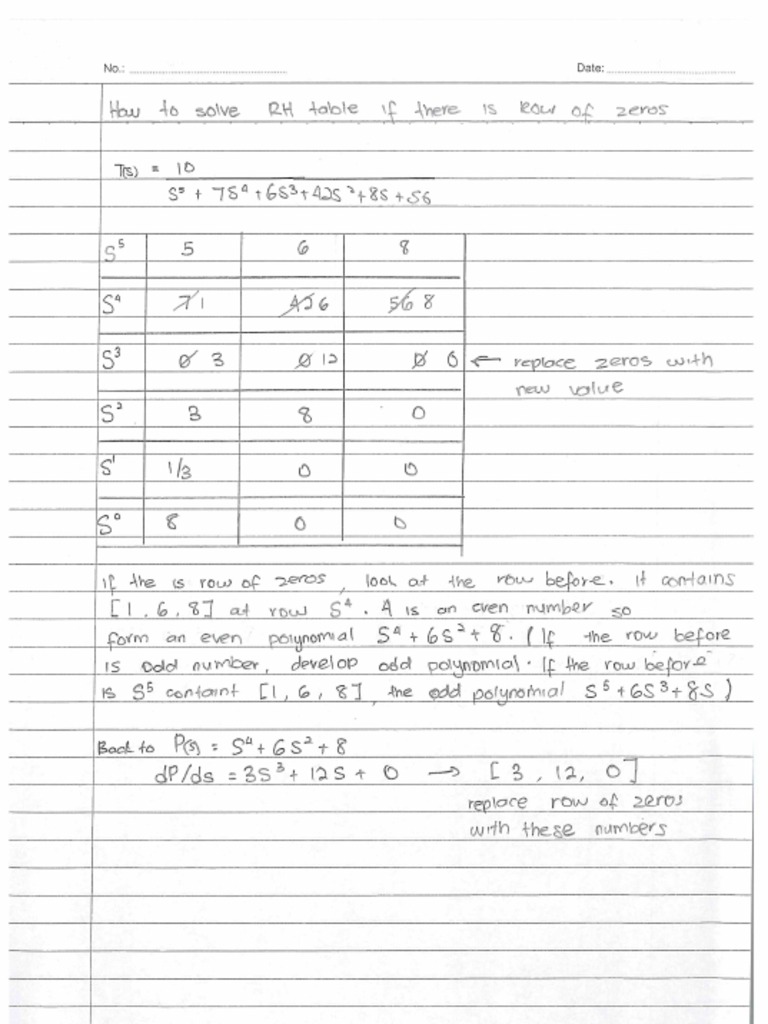 No.: Date:
How to solve RH table if there is Row of zeros
T(s) = 10
S⁵ + 7S⁴ + 6S³ + 42S² + 8S + 56
S⁵ 5 6 8
S⁴ 7 1 42 6 56 8
S³ 0 3 0 12 0 0 ← replace zeros with
new value
S² 3 8 0
S¹ 1/3 0 0
S⁰ 8 0 0
if the is row of zeros, look at the row before. it contains
[1, 6, 8] at row S⁴. 4 is an even number so
form an even polynomial S⁴ + 6S² + 8. (If the row before
is odd number, develop odd polynomial. If the row before
is S⁵ containt [1, 6, 8], the odd polynomial S⁵ + 6S³ + 8S)
Back to P(s) = S⁴ + 6S² + 8
dP/ds = 3S³ + 12S + 0 → [3, 12, 0]
replace row of zeros
with these numbers